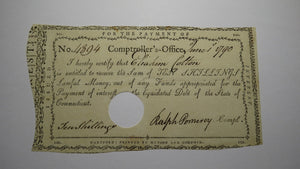 FOR THE PAYMENT OF
No. 4394 Comptroller's-Office, June 1 1790
I hereby certify that Eleazem Colton
is entitled to receive the Sum of Ten SHILLINGS
Lawful Money, out of any Funds appropriated for the
Payment of interest on the liquidated Debt of the State of
Connecticut.
Ten Shillings Ralph Pomeroy Compt.
HARTFORD: PRINTED BY HUDSON AND GOODWIN.